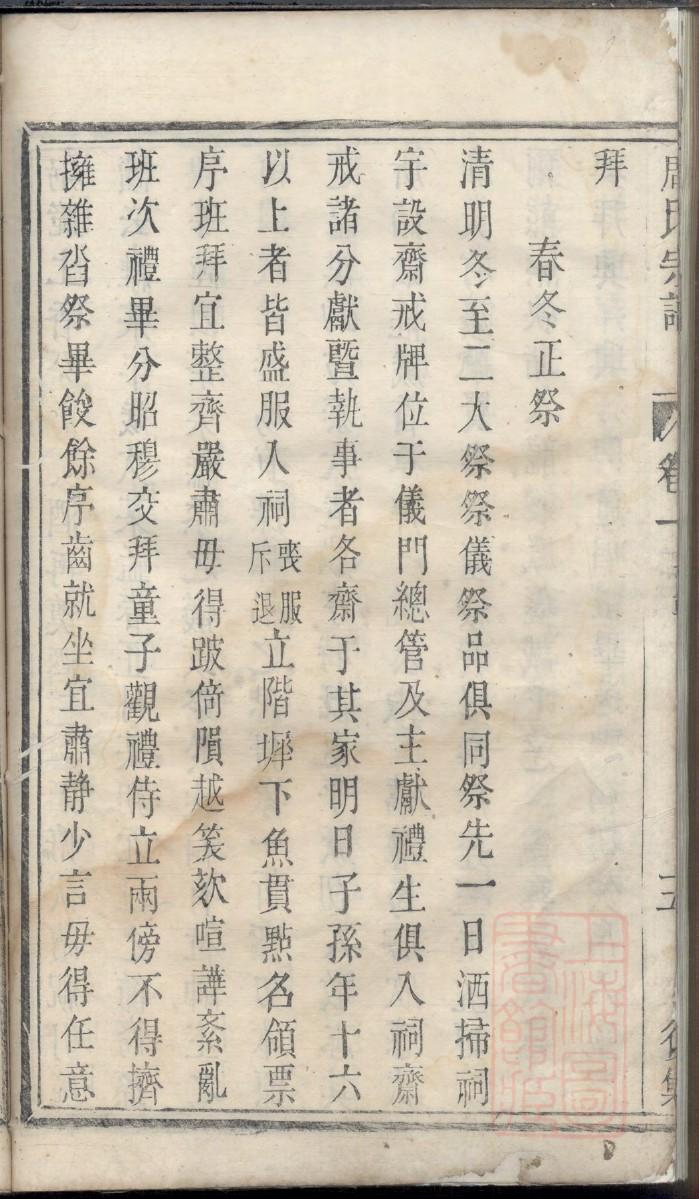 拜
春冬正祭
清明冬至二大祭祭儀祭品俱同祭先一日洒掃祠
宇設齋戒牌位于儀門總管及主獻禮生俱入祠齋
戒諸分獻暨執事者各齋于其家明日子孫年十六
以上者皆盛服入祠喪服斥退立階墀下魚貫點名領票
序班拜宜整齊嚴肅毋得跛倚隕越笑欬喧譁紊亂
班次禮畢分昭穆交拜童子觀禮侍立兩傍不得擠
擁雜沓祭畢餕餘序齒就坐宜肅静少言毋得任意